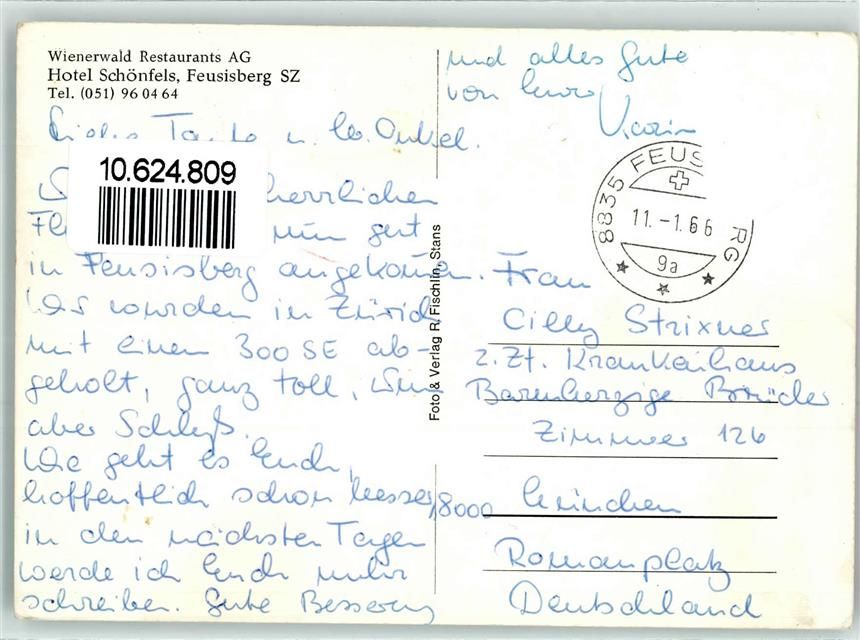 Wienerwald Restaurants AG
Hotel Schönfels, Feusisberg SZ
Tel. (051) 96 04 64
Liebe Tante u. lb. Onkel.
10.624.809
herrlichen
nun gut
in Feusisberg angekommen.
Wir wurden in Zürich
mit einem 300 SE ab-
geholt, ganz toll,
aber Schluß.
Wie geht es Euch,
hoffentlich schon besser,
in den nächsten Tagen
werde ich Euch mehr
schreiben. Gute Besserung
und alles Gute
von Eurer
Karin
Foto & Verlag R. Fischlin, Stans
8835 FEUS RG
11.-1.66
9a
Frau
Cilly Strixner
z.Zt. Krankenhaus
Barmherzige Brüder
Zimmer 126
8000 München
Romanplatz
Deutschland